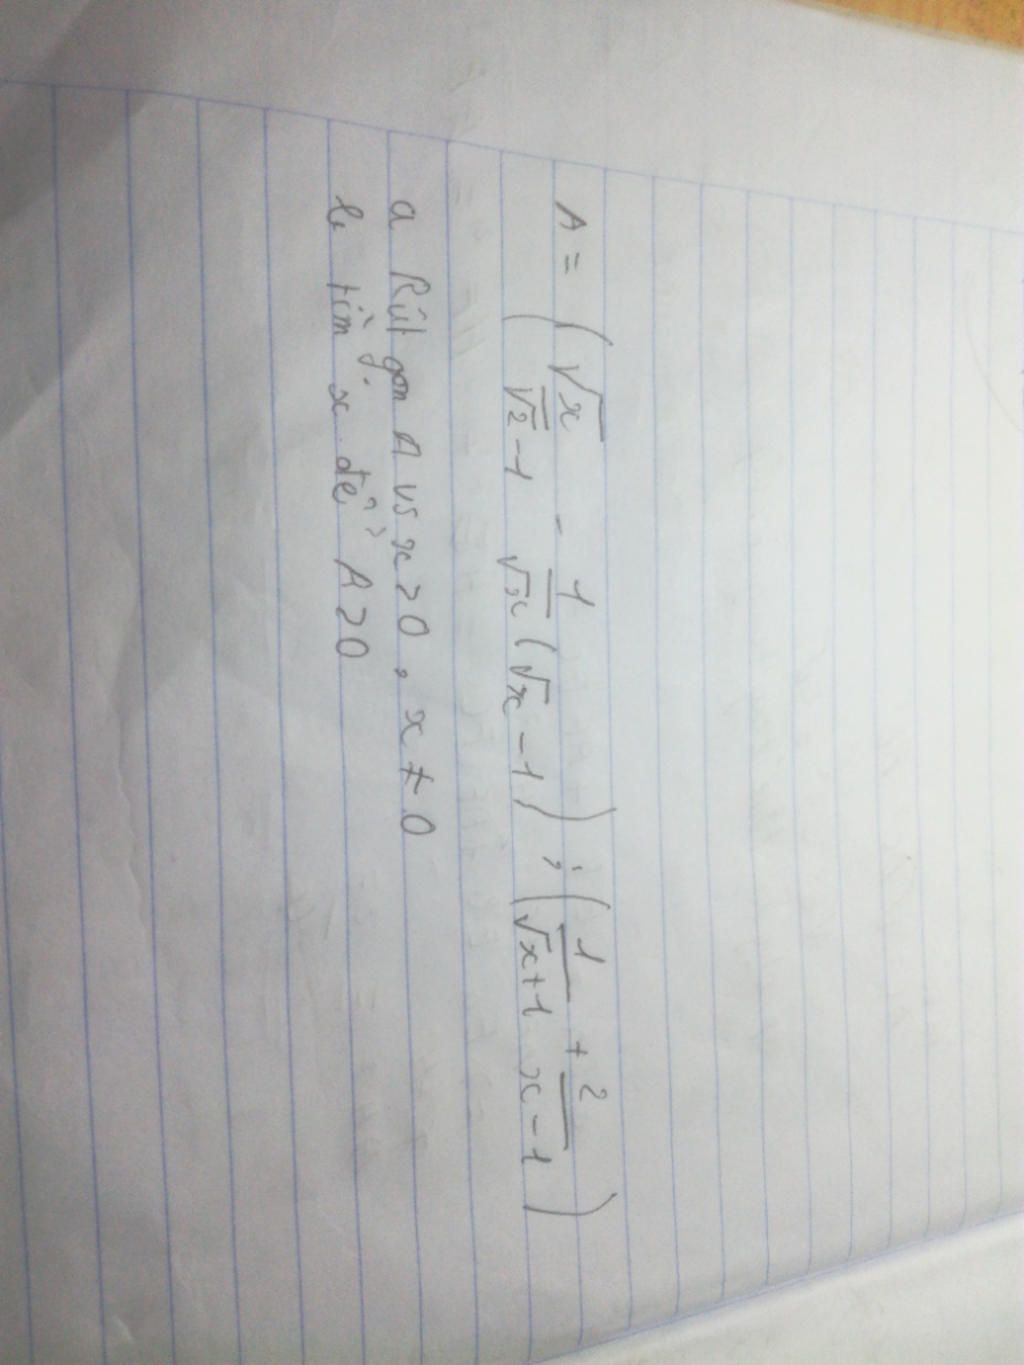 A = ( √x / √2 - 1 - 1 / √x (√x - 1) ) : ( 1 / √x + 1 + 2 / x - 1 )
a Rút gọn A vs x > 0, x ≠ 0
b, tìm x để A > 0